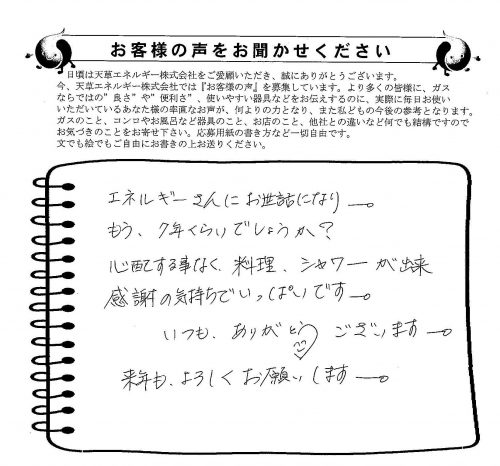 お客様の声をお聞かせください
日頃は天草エネルギー株式会社をご愛顧いただき、誠にありがとうございます。
今、天草エネルギー株式会社では『お客様の声』を募集しています。より多くの皆様に、ガス
ならではの”良さ”や”便利さ”、使いやすい器具などをお伝えするのに、実際に毎日お使い
いただいているあなた様の率直なお声が、何よりの力となり、また私どもの今後の参考となります。
ガスのこと、コンロやお風呂など器具のこと、お店のこと、他社との違いなど何でも結構ですので
お気づきのことをお寄せ下さい。応募用紙の書き方など一切自由です。
文でも絵でもご自由にお書きの上お送りください。
エネルギーさんにお世話になり ー。
もう、7年くらいでしょうか?
心配する事なく、料理、シャワーが出来
感謝の気持ちでいっぱいです ー。
いつも、ありがとう ございます ー。
来年も、よろしくお願いします ー。